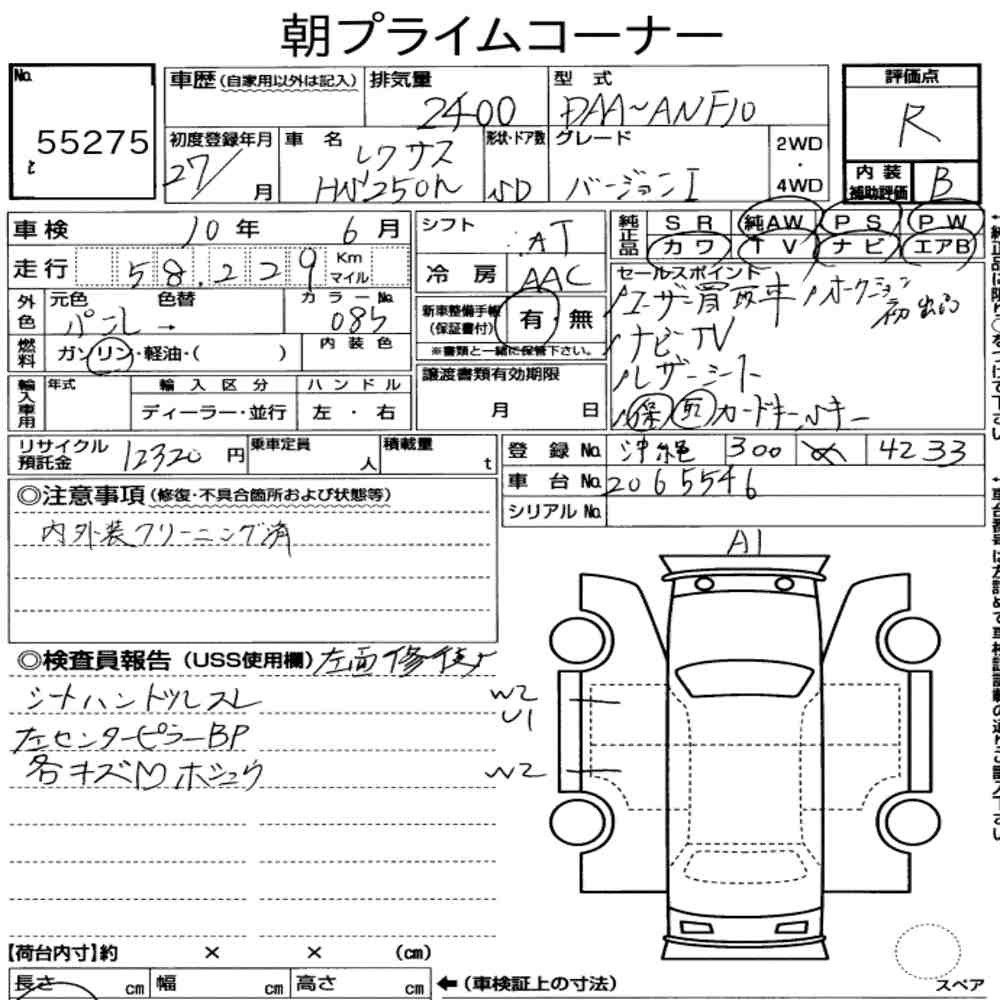 朝プライムコーナー
No. 55275
車歴(自家用以外は記入)
排気量 2400
型式 DAA~ANF10
評価点 R
初度登録年月 27/ 月
車名 レクサス HS250h
形状・ドア数 SD
グレード バージョンI
2WD・4WD
内装補助評価 B
車検 10年 6月
シフト AT
純正品 SR 純AW PS PW
カワ TV ナビ エアB
走行 58,229 Km マイル
冷房 AAC
セールスポイント
ユーザー買取車 オークション初出品
ナビ TV
レザーシート
保 取 カードキー、Sキー
外色 元色 色替 カラーNo.
パール → 085
新車整備手帳(保証書付) 有・無
※書類と一緒に保管下さい。
燃料 ガソリン・軽油・( )
内装色
輸入車用 年式 輸入区分 ハンドル
ディーラー・並行 左・右
譲渡書類有効期限
月 日
リサイクル預託金 12320円
乗車定員 人
積載量 t
登録No. 沖縄 300 4233
車台No. 2065546
シリアルNo.
◎注意事項(修復・不具合箇所および状態等)
内外装クリーニング済
A1
◎検査員報告(USS使用欄) 左面修復
シートハンドルスレ
左センターピラーBP
各キズMボシュウ
W2
U1
W2
【荷台内寸】約 × × (cm)
長さ cm 幅 cm 高さ cm
←(車検証上の寸法)
スペア